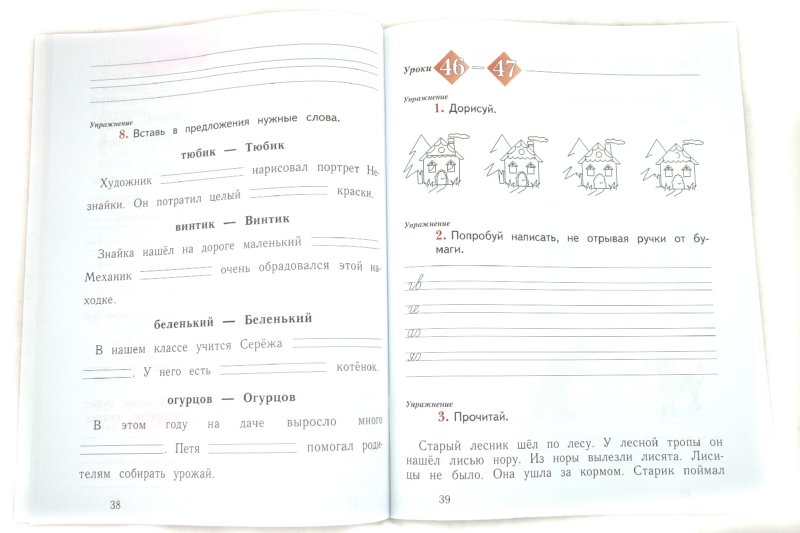 Упражнение
8. Вставь в предложения нужные слова.
тюбик — Тюбик
Художник нарисовал портрет Не-
знайки. Он потратил целый краски.
винтик — Винтик
Знайка нашёл на дороге маленький
Механик очень обрадовался этой на-
ходке.
беленький — Беленький
В нашем классе учится Серёжа
. У него есть котёнок.
огурцов — Огурцов
В этом году на даче выросло много
. Петя помогал роди-
телям собирать урожай.
38
Уроки 46 — 47
Упражнение
1. Дорисуй.
Упражнение
2. Попробуй написать, не отрывая ручки от бу-
маги.
Упражнение
3. Прочитай.
Старый лесник шёл по лесу. У лесной тропы он
нашёл лисью нору. Из норы вылезли лисята. Лиси-
цы не было. Она ушла за кормом. Старик поймал
39